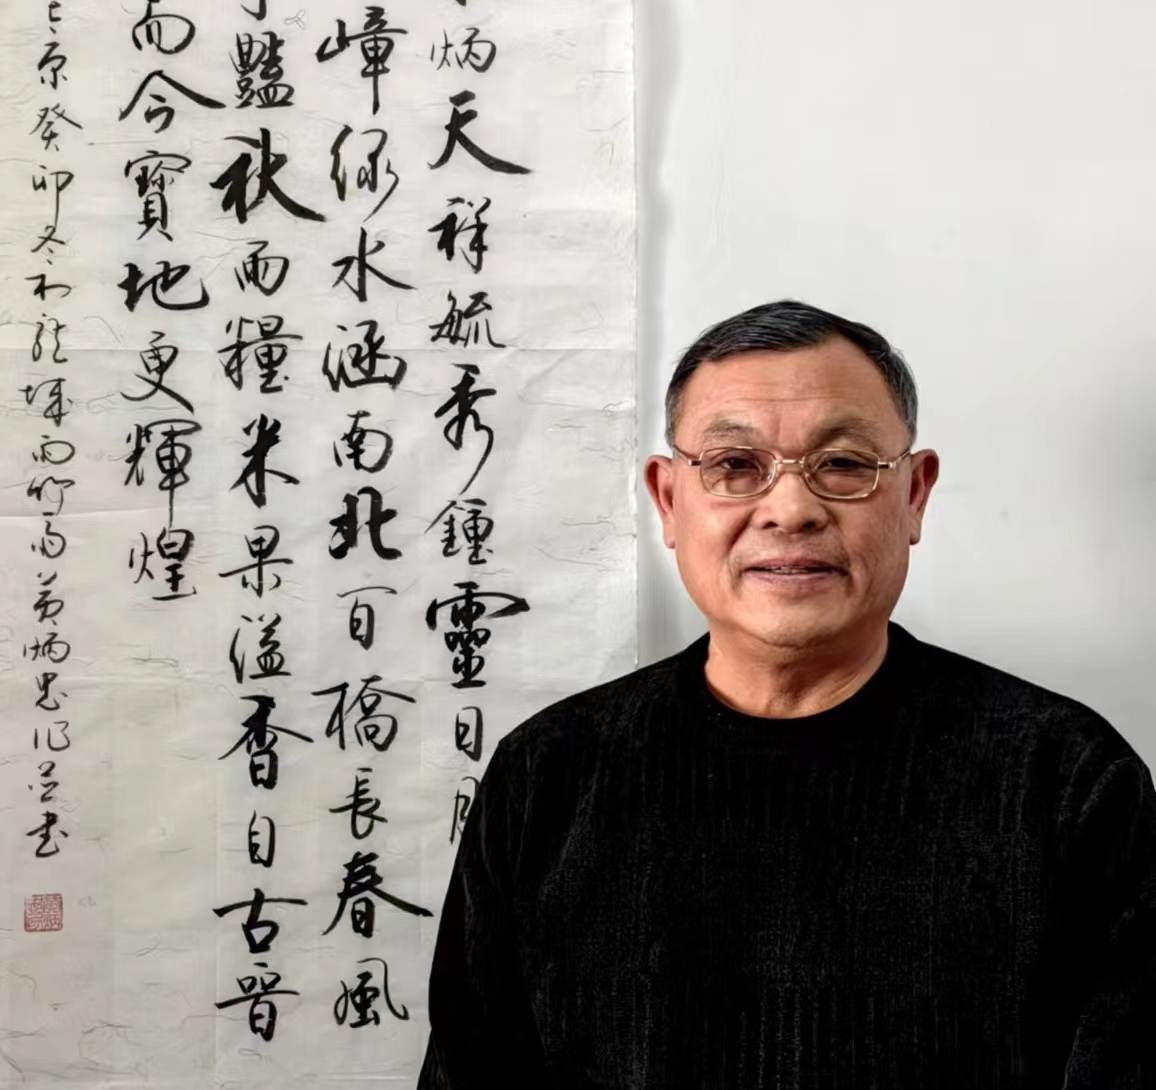 炳天祥毓秀鍾靈日月
嶂绿水涵南北百橋長春風
豔秋雨糧米果溢香自古晉
而今寶地更輝煌
原癸卯冬初龍城雨竹斋黄炳忠作並書